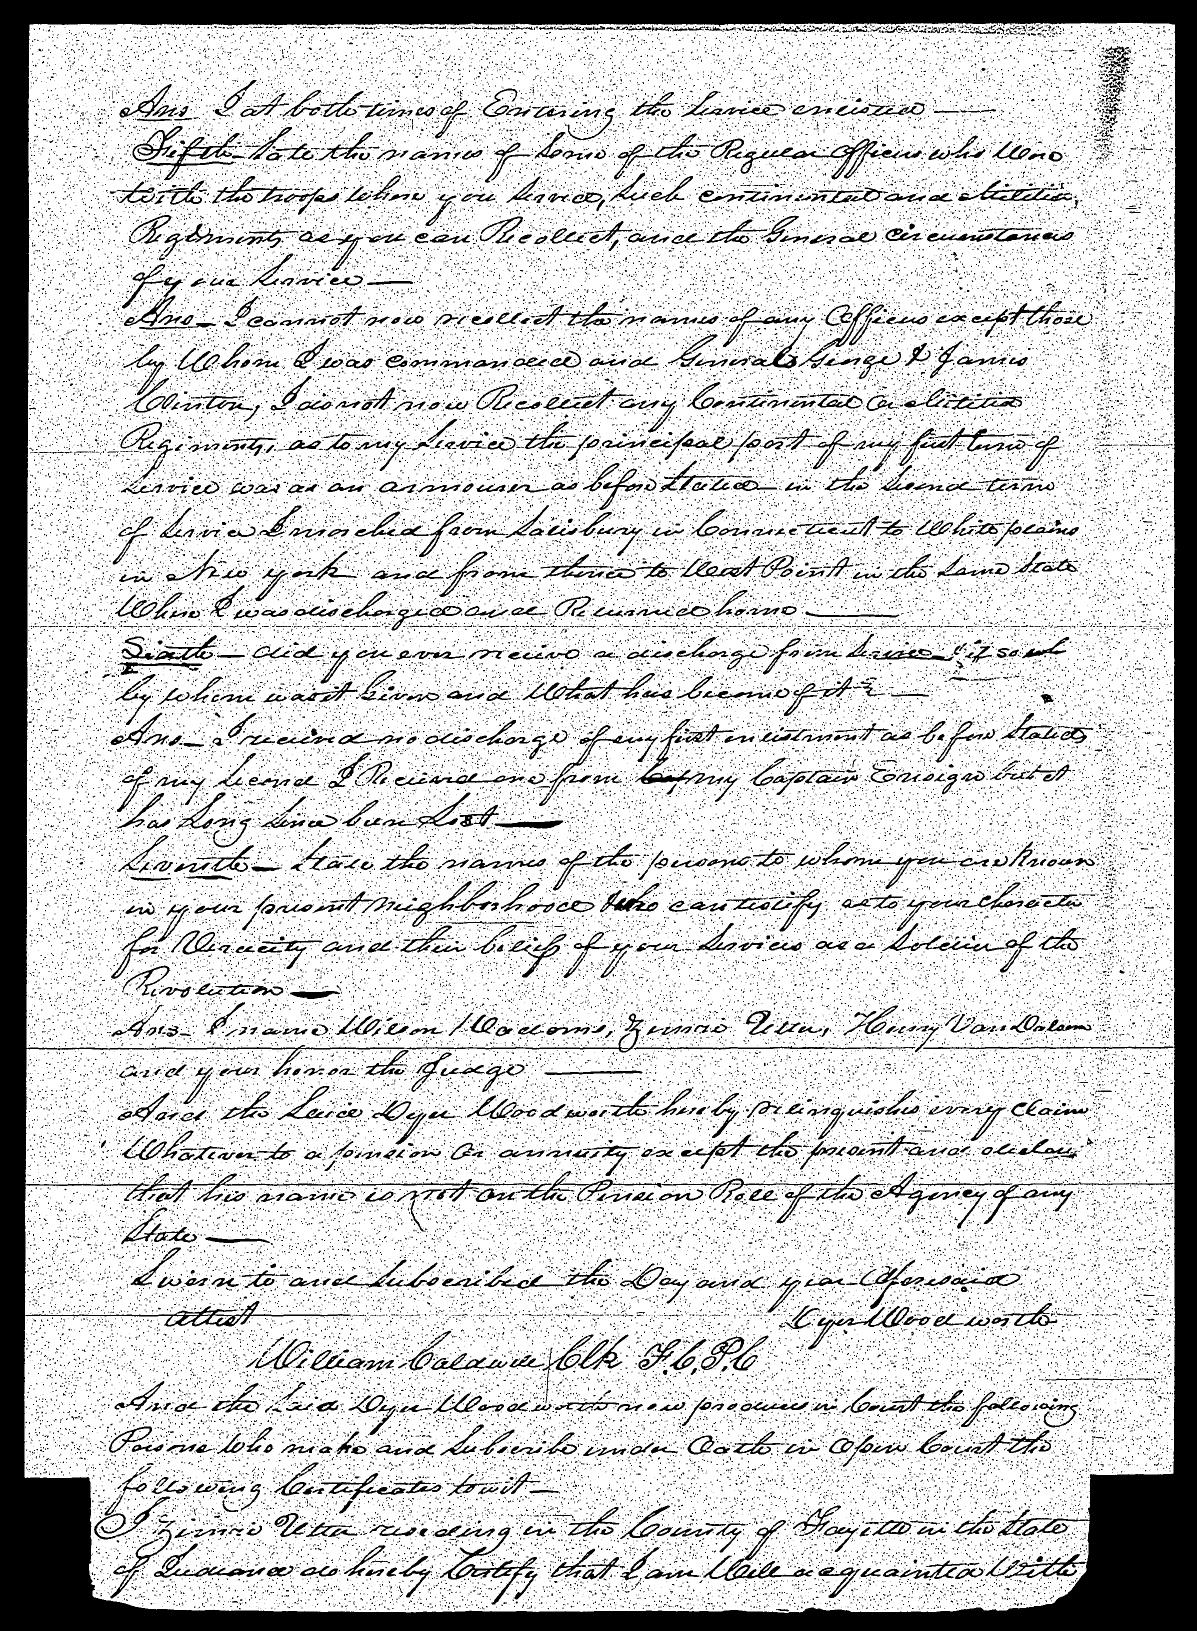 Ans I at both times of Entering the Service enlisted —
Fifth State the names of Some of the Regular officers who Were
with the troops Where you Served, Such continental and Militia,
Regiments as you can Recollect, and the General circumstances
of your Service —
Ans — I cannot now recollect the names of any Officers except those
by Whom I was commanded and Generals George & James
Clinton, I do not now Recollect any Continental Or Militia
Regiments, as to my Service the principal part of my first term of
Service was as an armourer as before Stated — in the Second term
of Service I marched from Salisbury in Connecticut to White plains
in New york and from thence to West Point in the Same State
Where I was discharged and Returned home —
Sixth — did you ever receive a discharge from Service, if so
by whom was it Given and What has become of it? —
Ans — I received no discharge of my first enlistment as before Stated,
of my Second I Received one from my Captain Ensign but it
has Long Since been Lost —
Seventh — State the names of the persons to whom you are Known
in your present Neighborhood who can testify as to your character
for Veracity and their belief of your Services as a Soldier of the
Revolution —
Ans — I name Wilson Waddoms, Zimrie Utter, Henry VanDalsem
and your honor the Judge —
And the Said Dyer Woodworth hereby relinquishes every Claim
Whatever to a pension Or annuity except the present and declares
that his name is not on the Pension Roll of the Agency of any
State —
Sworn to and Subscribed the Day and year Aforesaid
attest Dyer Woodworth
William Caldwell Clk F.C.P.C
And the Said Dyer Woodworth now produces in Court the following
Persons Who make and Subscribe under Oath in Open Court the
following Certificates towit —
I Zimrie Utter residing in the County of Fayette in the State
of Indiana do hereby Certify that I am Well acquainted With